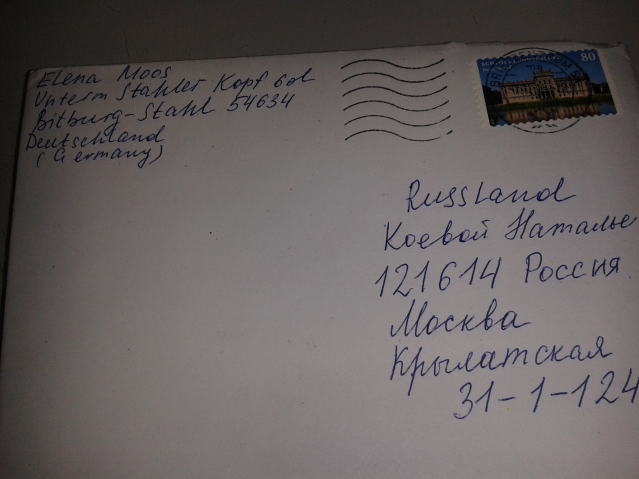 Elena Moos
Unterm Stahler Kopf 6d
Bitburg-Stahl 54634
Deutschland
(Germany)
80
Russland
Коевой Наталье
121614 Россия
Москва
Крылатская
31-1-124